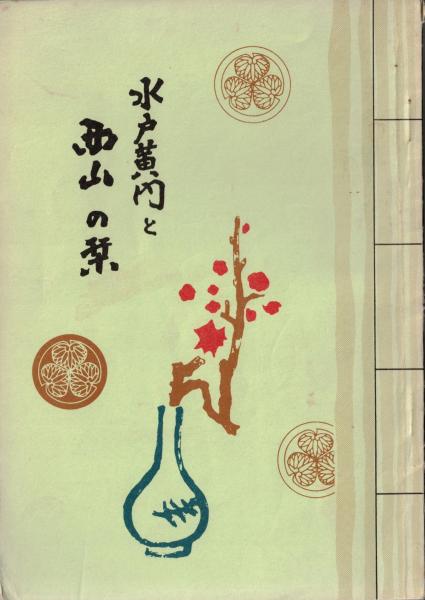 水戸黄門と
西山の栞